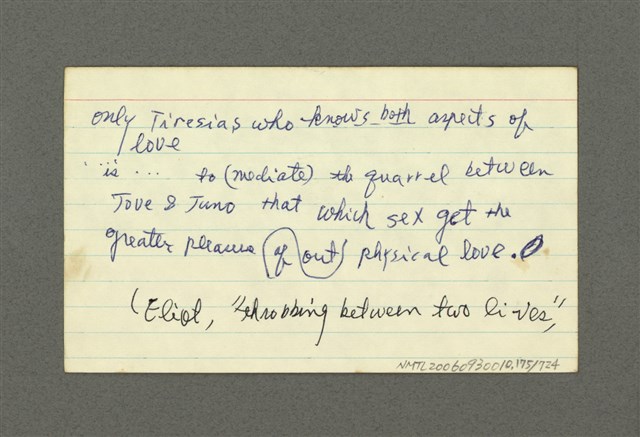 only Tiresias who knows both aspects of
love
is ... to (mediate) the quarrel between
Jove & Juno that which sex get the
greater pleasure of out physical love.
(Eliot, "throbbing between two lives",
NMTL20060930010.175/724